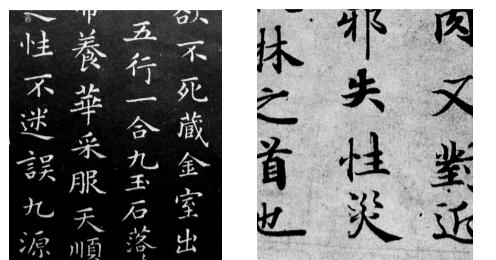 欲不死藏金室出
五行一合九玉石落
布養華采服天順
之性不迷誤九源
肉又對近
邪失性災
林之首也